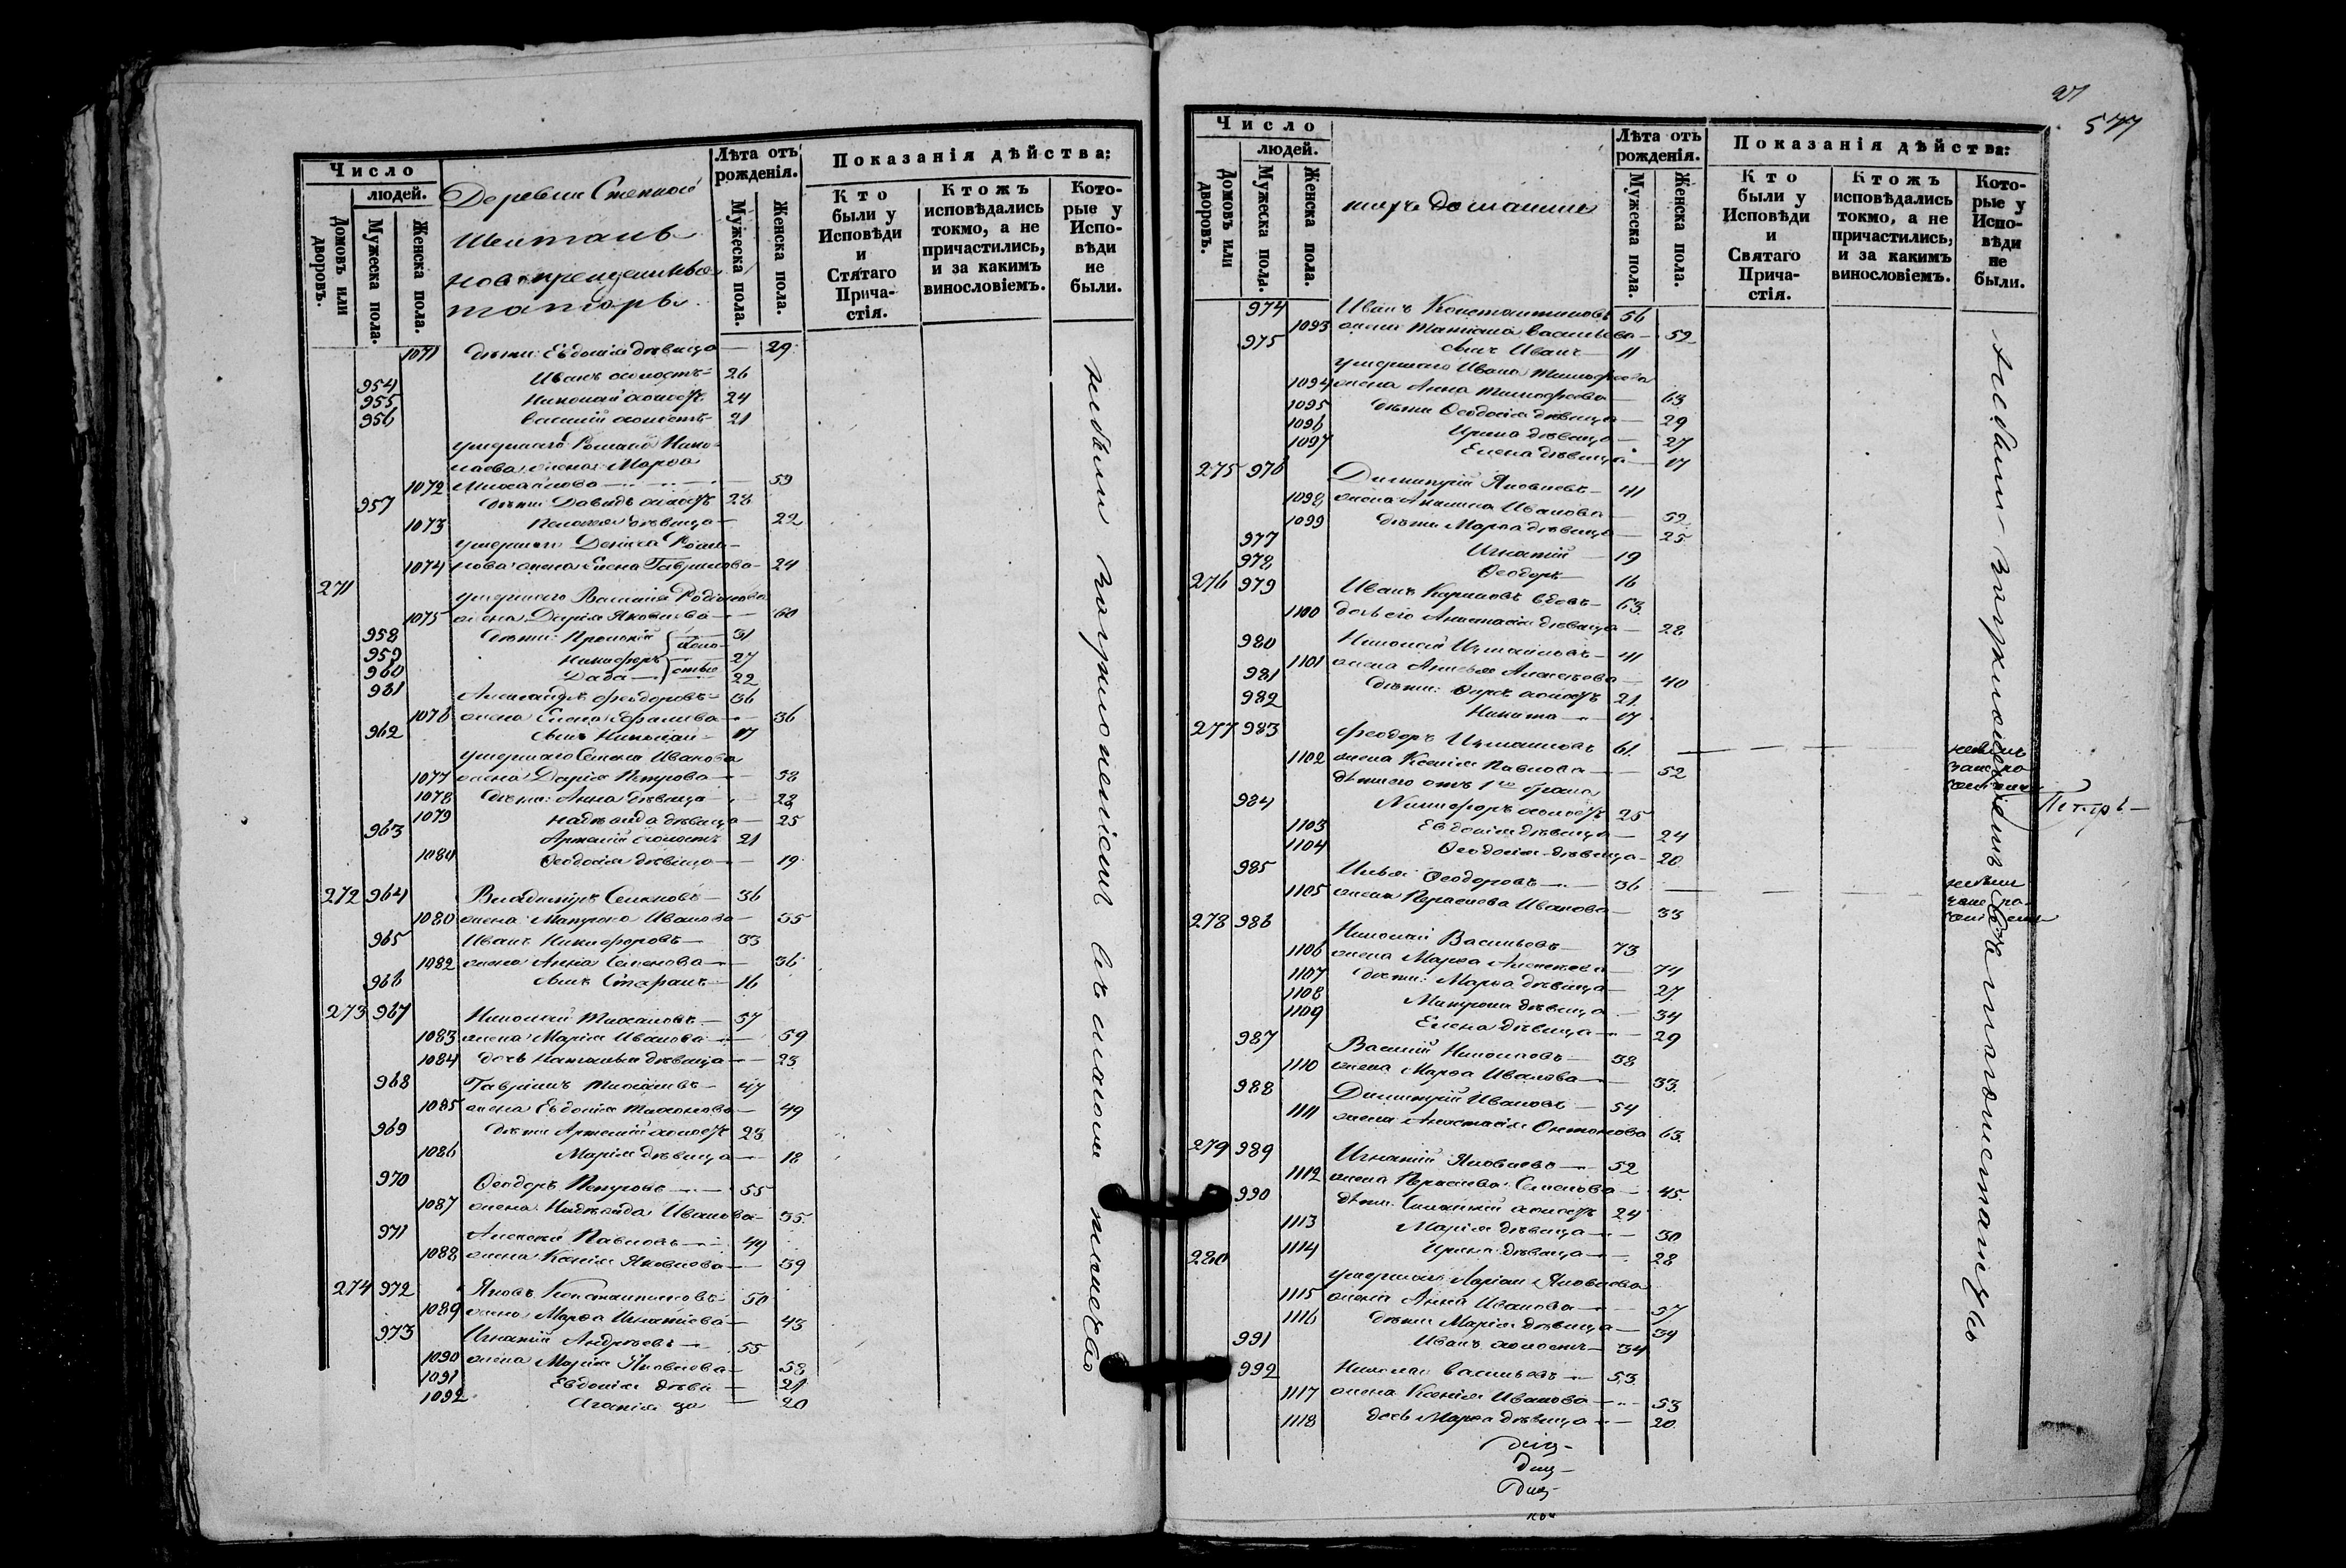 Число
людей.
Домовъ или дворовъ.
Мужеска пола.
Женска пола.
Деревни Степной
Шентала
новокрещенные
татары
Лѣта отъ рожденія.
Мужеска пола.
Женска пола.
Показанія дѣйства:
Кто были у Исповѣди и Святаго Причастія.
Ктожъ исповѣдались токмо, а не причастились, и за какимъ винословіемъ.
Которые у Исповѣди не были.
1071 дѣти: Евдокія дѣвица — 29
954 Иванъ холостъ — 26
955 Николай холостъ 24
956 Василій холостъ — 21
умершаго Романа Нико-
лаева жена Марѳа
1072 Михайлова — 59
957 дѣти Давидъ холостъ 28
1073 Пелагея дѣвица — 22
умершаго Дениса Рома-
1074 нова жена Елена Гаврилова — 24
271 умершаго Василія Родіонова
1075 жена Дарія Яковлева — 60
958 дѣти: Прокопій 31
959 Никифоръ 27
960 22
холо-
стые
981 Александръ Ѳеодоровъ — 36
1076 жена Елена — 36
962 сынъ Николай — 17
умершаго Семена Иванова
1077 жена Дарія Петрова — 58
1078 дѣти: Анна дѣвица — 28
1079 Надежда дѣвица — 25
963 Артемій холостъ 21
1084 Ѳеодосія дѣвица — 19
272 964 Владиміръ Семеновъ — 36
1080 жена Матрона Иванова — 35
965 Иванъ Никифоровъ — 33
1082 жена Анна Семенова — 36
966 сынъ Стефанъ — 16
273 967 Николай Тихановъ — 57
1083 жена Марія Иванова — 59
1084 дочь Наталья дѣвица — 23
968 Гавріилъ — 47
1085 жена Евдокія — 49
969 дѣти Артемій холостъ 23
1086 Марія дѣвица — 18
970 Ѳеодоръ Петровъ — 55
1087 жена Надежда Иванова — 35
971 Алексѣй Павловъ — 49
1088 жена Ксенія Яковлева — 39
274 972 Яковъ Константиновъ — 50
1089 жена Марѳа Игнатіева — 43
973 Игнатій Андреевъ — 55
1090 жена Марія Яковлева — 58
1091 Евдокія дѣви — 24
1092 Агапія ца — 20
не были по уклоненію въ
21
577
Число
людей.
Домовъ или дворовъ.
Мужеска пола.
Женска пола.
ихъ домашніе
Лѣта отъ рожденія.
Мужеска пола.
Женска пола.
Показанія дѣйства:
Кто были у Исповѣди и Святаго Причастія.
Ктожъ исповѣдались токмо, а не причастились, и за какимъ винословіемъ.
Которые у Исповѣди не были.
974 Иванъ Константиновъ 56
1093 жена Татіана Васильева — 52
975 сынъ Иванъ — 11
умершаго Ивана Тимофеева
1094 жена Анна Тимофеева — 63
1095 дѣти Ѳеодосія дѣвица — 29
1096 Ирина дѣвица — 27
1097 Елена дѣвица — 17
275 976 Димитрій Яковлевъ — 41
1098 жена Акилина Иванова — 52
1099 дѣти Марѳа дѣвица — 25
977 Игнатій — 19
978 Ѳеодоръ — 16
276 979 Иванъ Кириловъ вдовъ — 63
1100 дочь его Анастасія дѣвица — 28
980 Николай — 41
1101 жена Алексѣева — 40
981 дѣти: холостъ 21
982 Никита — 17
277 983 Ѳеодоръ 61
1102 жена Ксенія Павлова — 52
дѣти его отъ 1го брака
984 Никифоръ холостъ 25
1103 Евдокія дѣвица — 24
1104 Ѳеодосія дѣвица — 20
985 Илья Ѳеодоровъ — 36
1105 жена Параскева Иванова — 33
278 986 Николай Васильевъ — 73
1106 жена Марѳа Алексѣева — 74
1107 дѣти: Марѳа дѣвица — 27
1108 Матрона дѣвица — 34
1109 Елена дѣвица — 29
987 Василій Николаевъ — 38
1110 жена Марѳа Иванова — 33
988 Димитрій Ивановъ — 54
1111 жена Анастасія Антонова 63
279 989 Игнатій Яковлевъ — 52
1112 жена Параскева Семенова — 45
990 дѣти холостъ 24
1113 Марія дѣвица — 30
1114 Ирина дѣвица — 28
280 умершаго Яковлева
1115 жена Анна Иванова — 57
1116 дѣти Марія дѣвица — 34
991 Иванъ холостъ — 34
992 Николай Васильевъ — 53
1117 жена Ксенія Иванова — 53
1118 дочь Марѳа дѣвица — 20
не были по уклоненію въ магометанство
не были
не были
Петръ